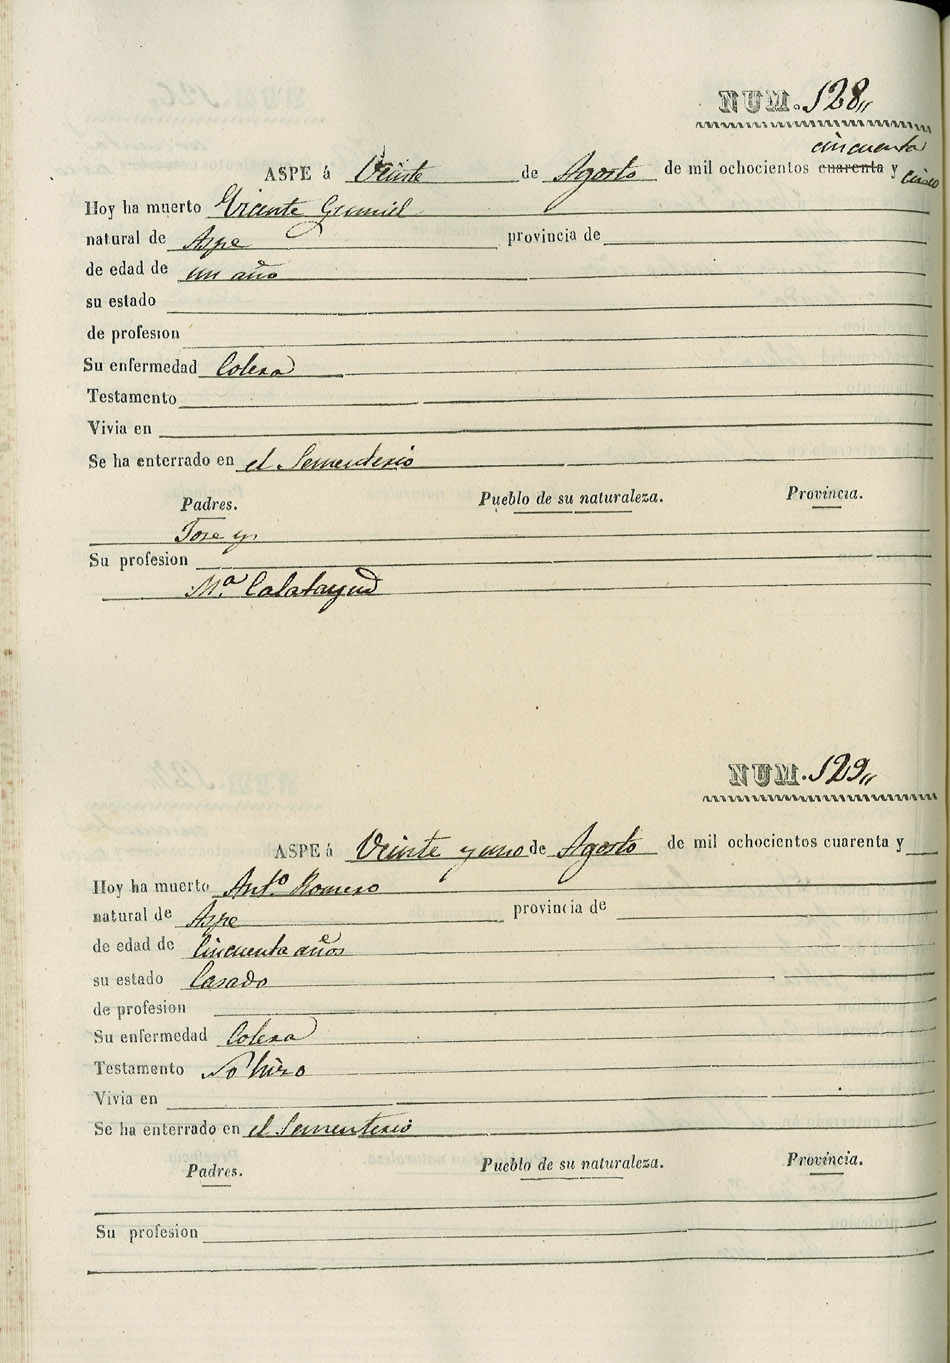 NUM. 128,,
cincuenta
ASPE á Veinte de Agosto de mil ochocientos cuarenta y cinco
Hoy ha muerto Vicente Gumiel
natural de Aspe provincia de
de edad de un año
su estado
de profesion
Su enfermedad Colera
Testamento
Vivia en
Se ha enterrado en el Sementerio
Padres. Pueblo de su naturaleza. Provincia.
Jose y
Su profesion
Mª Calatayud
NUM. 129,,
ASPE á Veinte y uno de Agosto de mil ochocientos cuarenta y
Hoy ha muerto Antº Romero
natural de Aspe provincia de
de edad de Cincuenta años
su estado Casado
de profesion
Su enfermedad Colera
Testamento No hizo
Vivia en
Se ha enterrado en el Sementerio
Padres. Pueblo de su naturaleza. Provincia.
Su profesion